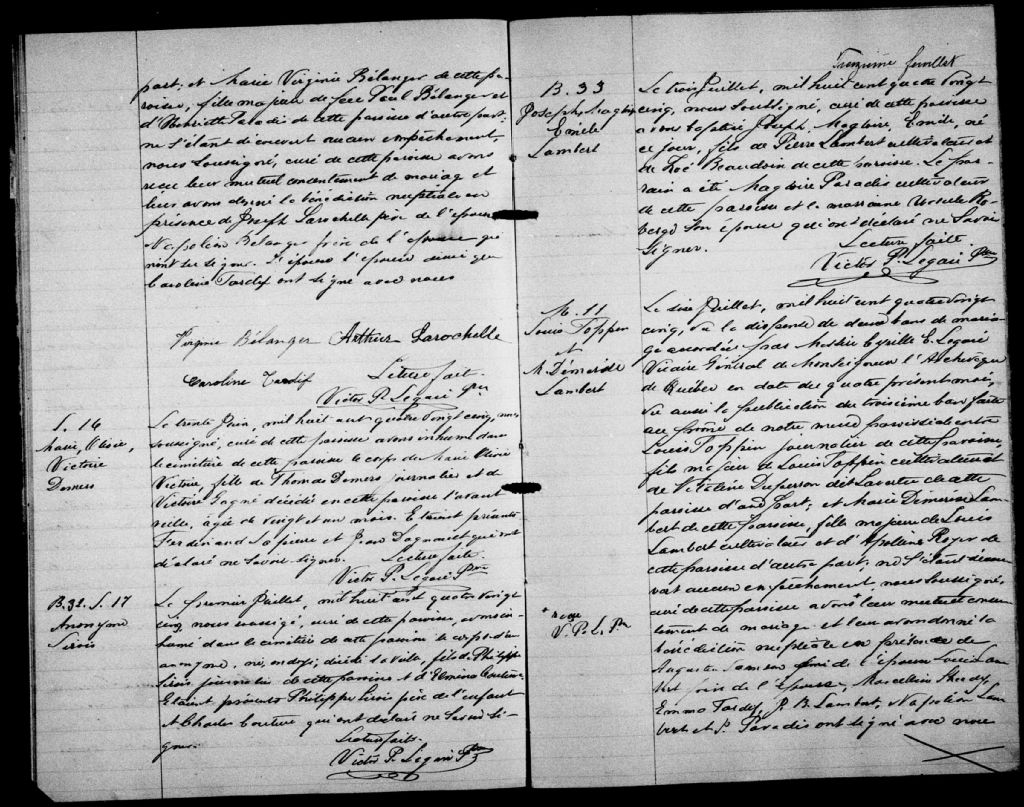 part, et Marie Virginie Bélanger de cette pa-
roisse, fille majeure de feu Paul Bélanger et
d'Henriette Paradis de cette paroisse d'autre part:
ne s'étant découvert aucun empêchement,
nous soussigné, curé de cette paroisse avons
reçu leur mutuel consentement de mariage et
leur avons donné la bénédiction nuptiale en
présence de Joseph Larochelle père de l'époux
Napoléon Bélanger frère de l'épouse qui
n'ont su signer. L'époux l'épouse ainsi que
Caroline Tardif ont signé avec nous
Virginie Bélanger Arthur Larochelle
Caroline Tardif Lecture faite.
Victor P. Légaré Ptre
S. 16
Marie, Olivie,
Victoire
Demers
Le trente Juin, mil huit cent quatre vingt cinq, nous
soussigné, curé de cette paroisse avons inhumé dans
le cimetière de cette paroisse le corps de Marie Olivie
Victoire, fille de Thomas Demers journalier et de
Victoire Gagné décédée en cette paroisse l'avant
veille, agée de vingt et un mois. Etaient présents
Ferdinand Lapierre et Jean Dagneau qui ont
déclaré ne savoir signer. Lecture faite.
Victor P. Légaré Ptre
B. 32. S. 17
Anonyme
Sirois
Le premier Juillet, mil huit cent quatre vingt
cinq, nous soussigné, curé de cette paroisse, avons in-
humé dans le cimetière de cette paroisse le corps d'un
anonyme, né, ondoyé, décédé la veille, fils de Philippe
Sirois journalier de cette paroisse et d'Elmina Couture.
Etaient présents Philippe Sirois père de l'enfant
et Charles Couture qui ont déclaré ne savoir si-
gner.
Lecture faite.
Victor P. Légaré Ptre
Treizième feuillet
B. 33
Joseph Magloire
Emile
Lambert
Le trois Juillet, mil huit cent quatre vingt
cinq, nous soussigné, curé de cette paroisse
avons baptisé Joseph, Magloire, Emile, né
ce jour, fils de Pierre Lambert cultivateur et
de Zoé Beaudoin de cette paroisse. Le par-
rain a été Magloire Paradis cultivateur
de cette paroisse et la marraine Ursule Ro-
berge son épouse qui ont déclaré ne savoir
signer.
Lecture faite.
Victor P. Légaré Ptre
M. 11
Louis Toppin
et
M. Démérise
Lambert
Le six Juillet, mil huit cent quatre vingt
cinq, vu la dispense de deux bans de maria-
ge accordée par Messire Cyrille E. Légaré
Vicaire Général de Monseigneur l'Archevêque
de Québec en date du quatre présent mois,
vu aussi la publication du troisième ban faite
au prône de notre messe paroissiale entre
Louis Toppin journalier de cette paroisse,
fils majeur de Louis Toppin cultivateur et
de Vitaline Duperron dit Lavertu de cette
paroisse d'une part; et Marie Démérise Lam-
bert de cette paroisse, fille majeure de Louis
Lambert cultivateur et d'Apolline Roger de
cette paroisse d'autre part, ne s'étant décou-
vert aucun empêchement, nous soussigné,
curé de cette paroisse avons* leur mutuel consen-
tement de mariage et leur avons donné la
bénédiction nuptiale en présence de
Auguste Samson ami de l'époux Louis Lam
bert père de l'épouse, Marcellin
Emma Tardif, P. B. Lambert, Napoléon Lam
bert et P. Paradis ont signé avec nous
* reçu
V. P. L. Ptre